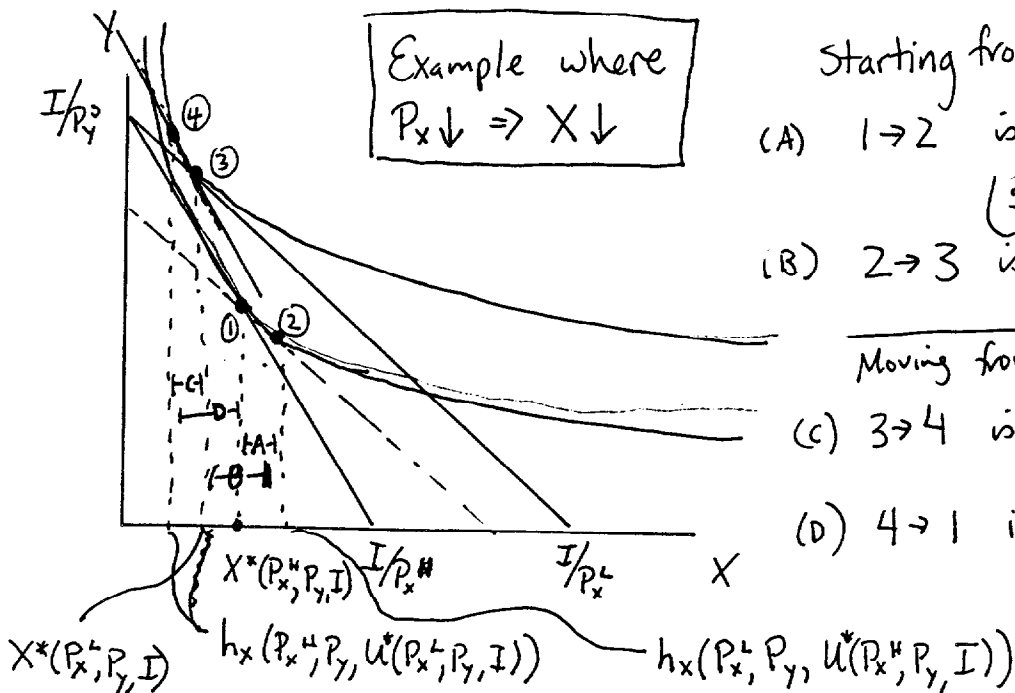 Example where
Pₓ↓ ⇒ X↓
Starting fro
(A) 1→2 is
(B) 2→3 is
Moving from
(C) 3→4 is
(D) 4→1 i
Y
I/P_y
④
③
①
②
C
D
A
B
X*(Pₓᴴ, P_y, I)
I/Pₓᴴ
I/Pₓᴸ
X
X*(Pₓᴸ, P_y, I)
hₓ(Pₓᴴ, P_y, U*(Pₓᴸ, P_y, I))
hₓ(Pₓᴸ, P_y, U*(Pₓᴴ, P_y, I))